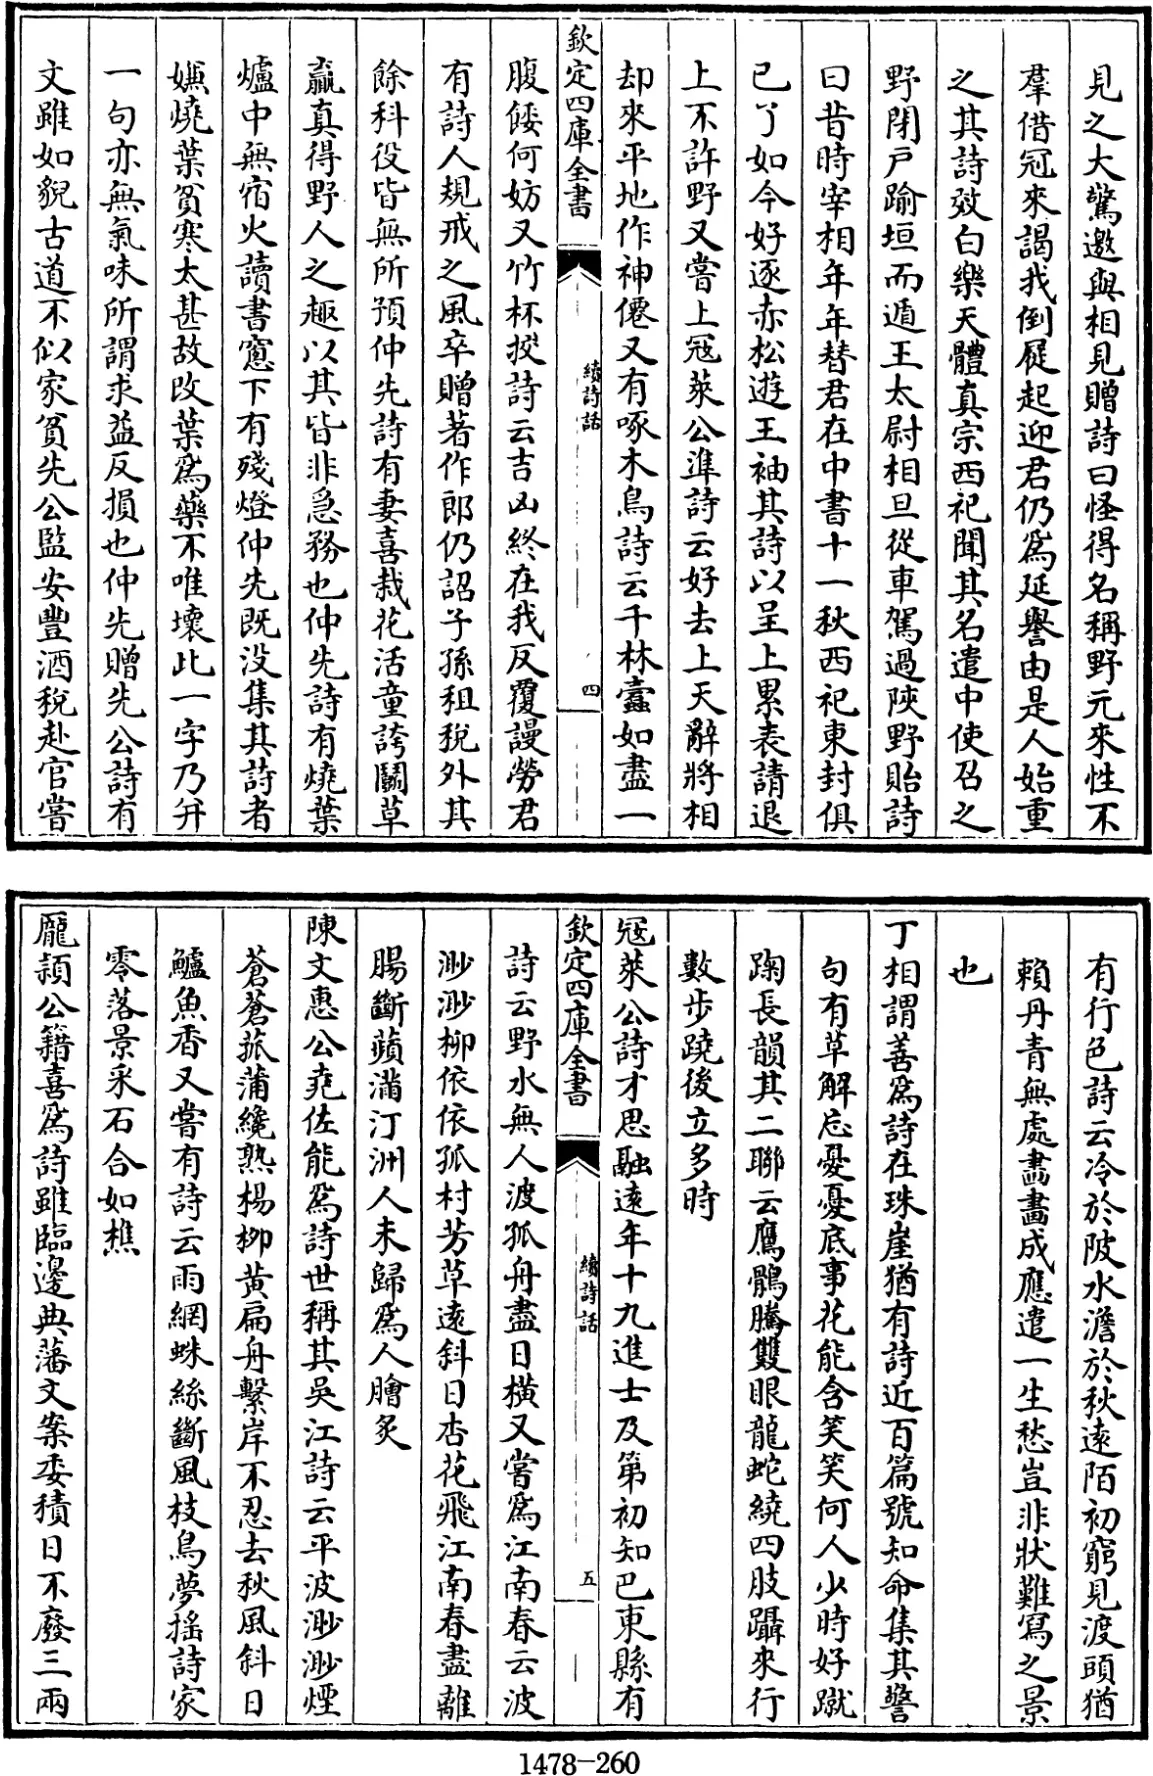 見之大驚邀與相見贈詩曰怪得名稱野元來性不
羣借冠來謁我倒屣起迎君仍爲延譽由是人始重
之其詩效白樂天體真宗西祀聞其名遣中使召之
野閉戶踰垣而遁王太尉相旦從車駕過陜野貽詩
曰昔時宰相年年替君在中書十一秋西祀東封俱
已了如今好逐赤松遊王袖其詩以呈上累表請退
上不許野又嘗上冦萊公準詩云好去上天辭將相
却來平地作神僊又有啄木鳥詩云千林蠧如盡一
欽定四庫全書
續詩話
四
腹餧何妨又竹杯珓詩云吉凶終在我反覆謾勞君
有詩人規戒之風卒贈著作郎仍詔子孫租稅外其
餘科役皆無所預仲先詩有妻喜栽花活童誇鬭草
贏真得野人之趣以其皆非急務也仲先詩有燒葉
爐中無宿火讀書窻下有殘燈仲先既没集其詩者
嫌燒葉貧寒太甚故改葉爲藥不唯壞此一字乃并
一句亦無氣味所謂求益反損也仲先贈先公詩有
文雖如貌古道不似家貧先公監安豐酒稅赴官嘗
有行色詩云冷於陂水澹於秋遠陌初窮見渡頭猶
賴丹青無處畵畵成應遣一生愁豈非狀難寫之景
也
丁相謂善爲詩在珠崖猶有詩近百篇號知命集其警
句有草解忘憂憂底事花能含笑笑何人少時好蹴
踘長韻其二聯云鷹鶻騰雙眼龍蛇繞四肢躡來行
數步蹺後立多時
冦萊公詩才思融遠年十九進士及第初知巴東縣有
欽定四庫全書
續詩話
五
詩云野水無人渡孤舟盡日橫又嘗爲江南春云波
渺渺柳依依孤村芳草遠斜日杏花飛江南春盡離
腸斷蘋滿汀洲人未歸爲人膾炙
陳文惠公堯佐能爲詩世稱其吳江詩云平波渺渺煙
蒼蒼菰蒲纔熟楊柳黃扁舟繫岸不忍去秋風斜日
鱸魚香又嘗有詩云雨網蛛絲斷風枝鳥夢搖詩家
零落景采石合如樵
龎頴公籍喜爲詩雖臨邊典藩文案委積日不廢三兩
1478-260